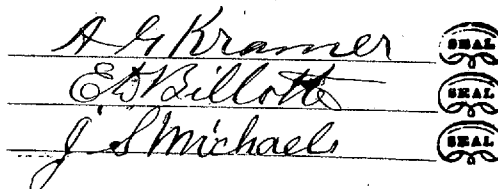 A G Kramer SEAL
E D Billotte SEAL
J S Michaels SEAL